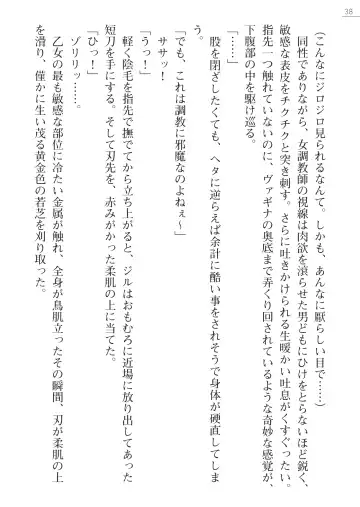 38
(こんなにジロジロ見られるなんて。しかも、あんなに厭らしい目で……)
同性でありながら、女調教師の視線は肉欲を滾らせた男どもにひけをとらないほど鋭く、
敏感な表皮をチクチクと突き刺す。さらに吐きかけられる生暖かい吐息がくすぐったい。
指先一つ触れていないのに、ヴァギナの奥底まで弄くり回されているような奇妙な感覚が、
下腹部の中を駆け巡る。
「……」
股を閉ざしたくても、ヘタに逆らえば余計に酷い事をされそうで身体が硬直してしま
う。
「でも、これは調教に邪魔なのよねぇ〜」
ササッ!
「うっ!」
軽く陰毛を指先で撫でてから立ち上がると、ジルはおもむろに近場に放り出してあった
短刀を手にする。そして刃先を、赤みがかった柔肌の上に当てた。
「ひっ!」
ゾリリッ……。
乙女の最も敏感な部位に冷たい金属が触れ、全身が鳥肌立ったその瞬間、刃が柔肌の上
を滑り、僅かに生い茂る黄金色の若芝を刈り取った。